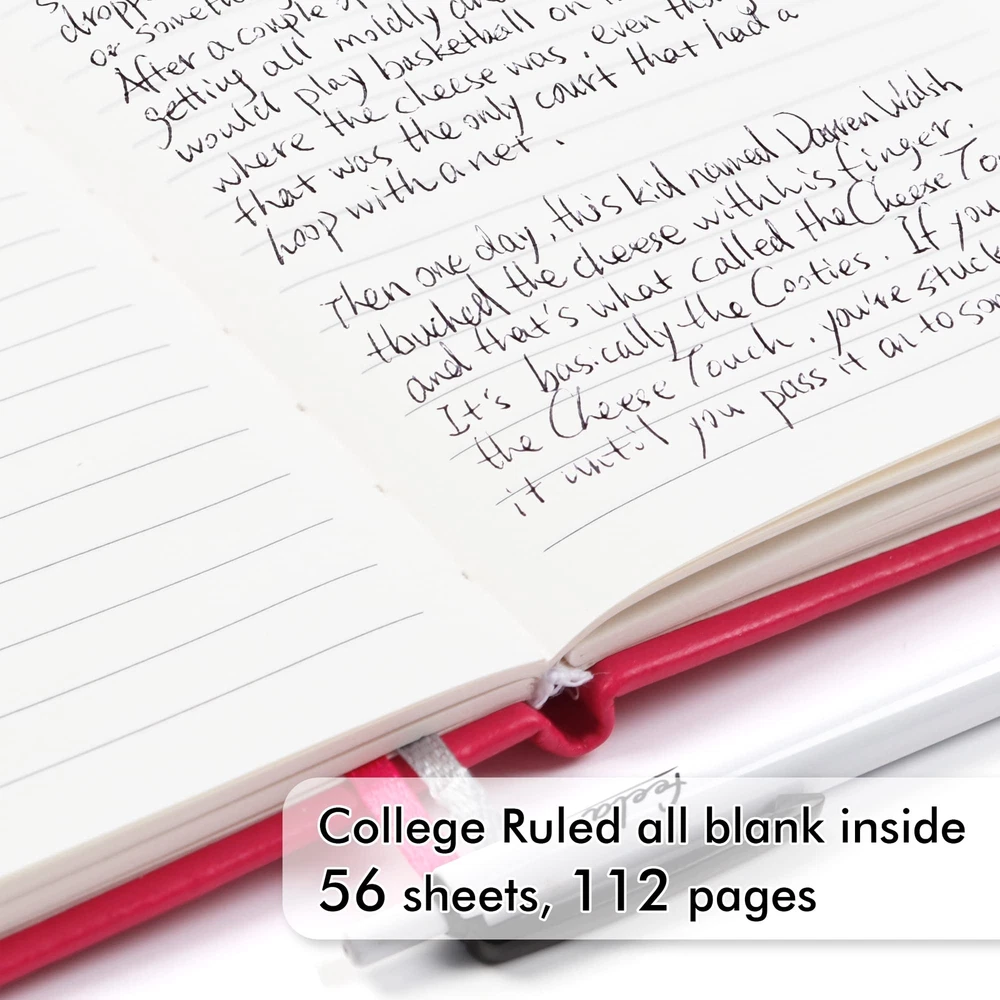 dropp
or someth
After a couple
getting all moldy an
would play basketball on
where the cheese was, even th
that was the only court that had a
hoop with a net.
Then one day, this kid named Darren Walsh
touched the cheese with his finger.
and that's what called the Cheese To
It's basically the Cooties. If you
the Cheese Touch, you're stuck
it until you pass it on to som
feela
College Ruled all blank inside
56 sheets, 112 pages